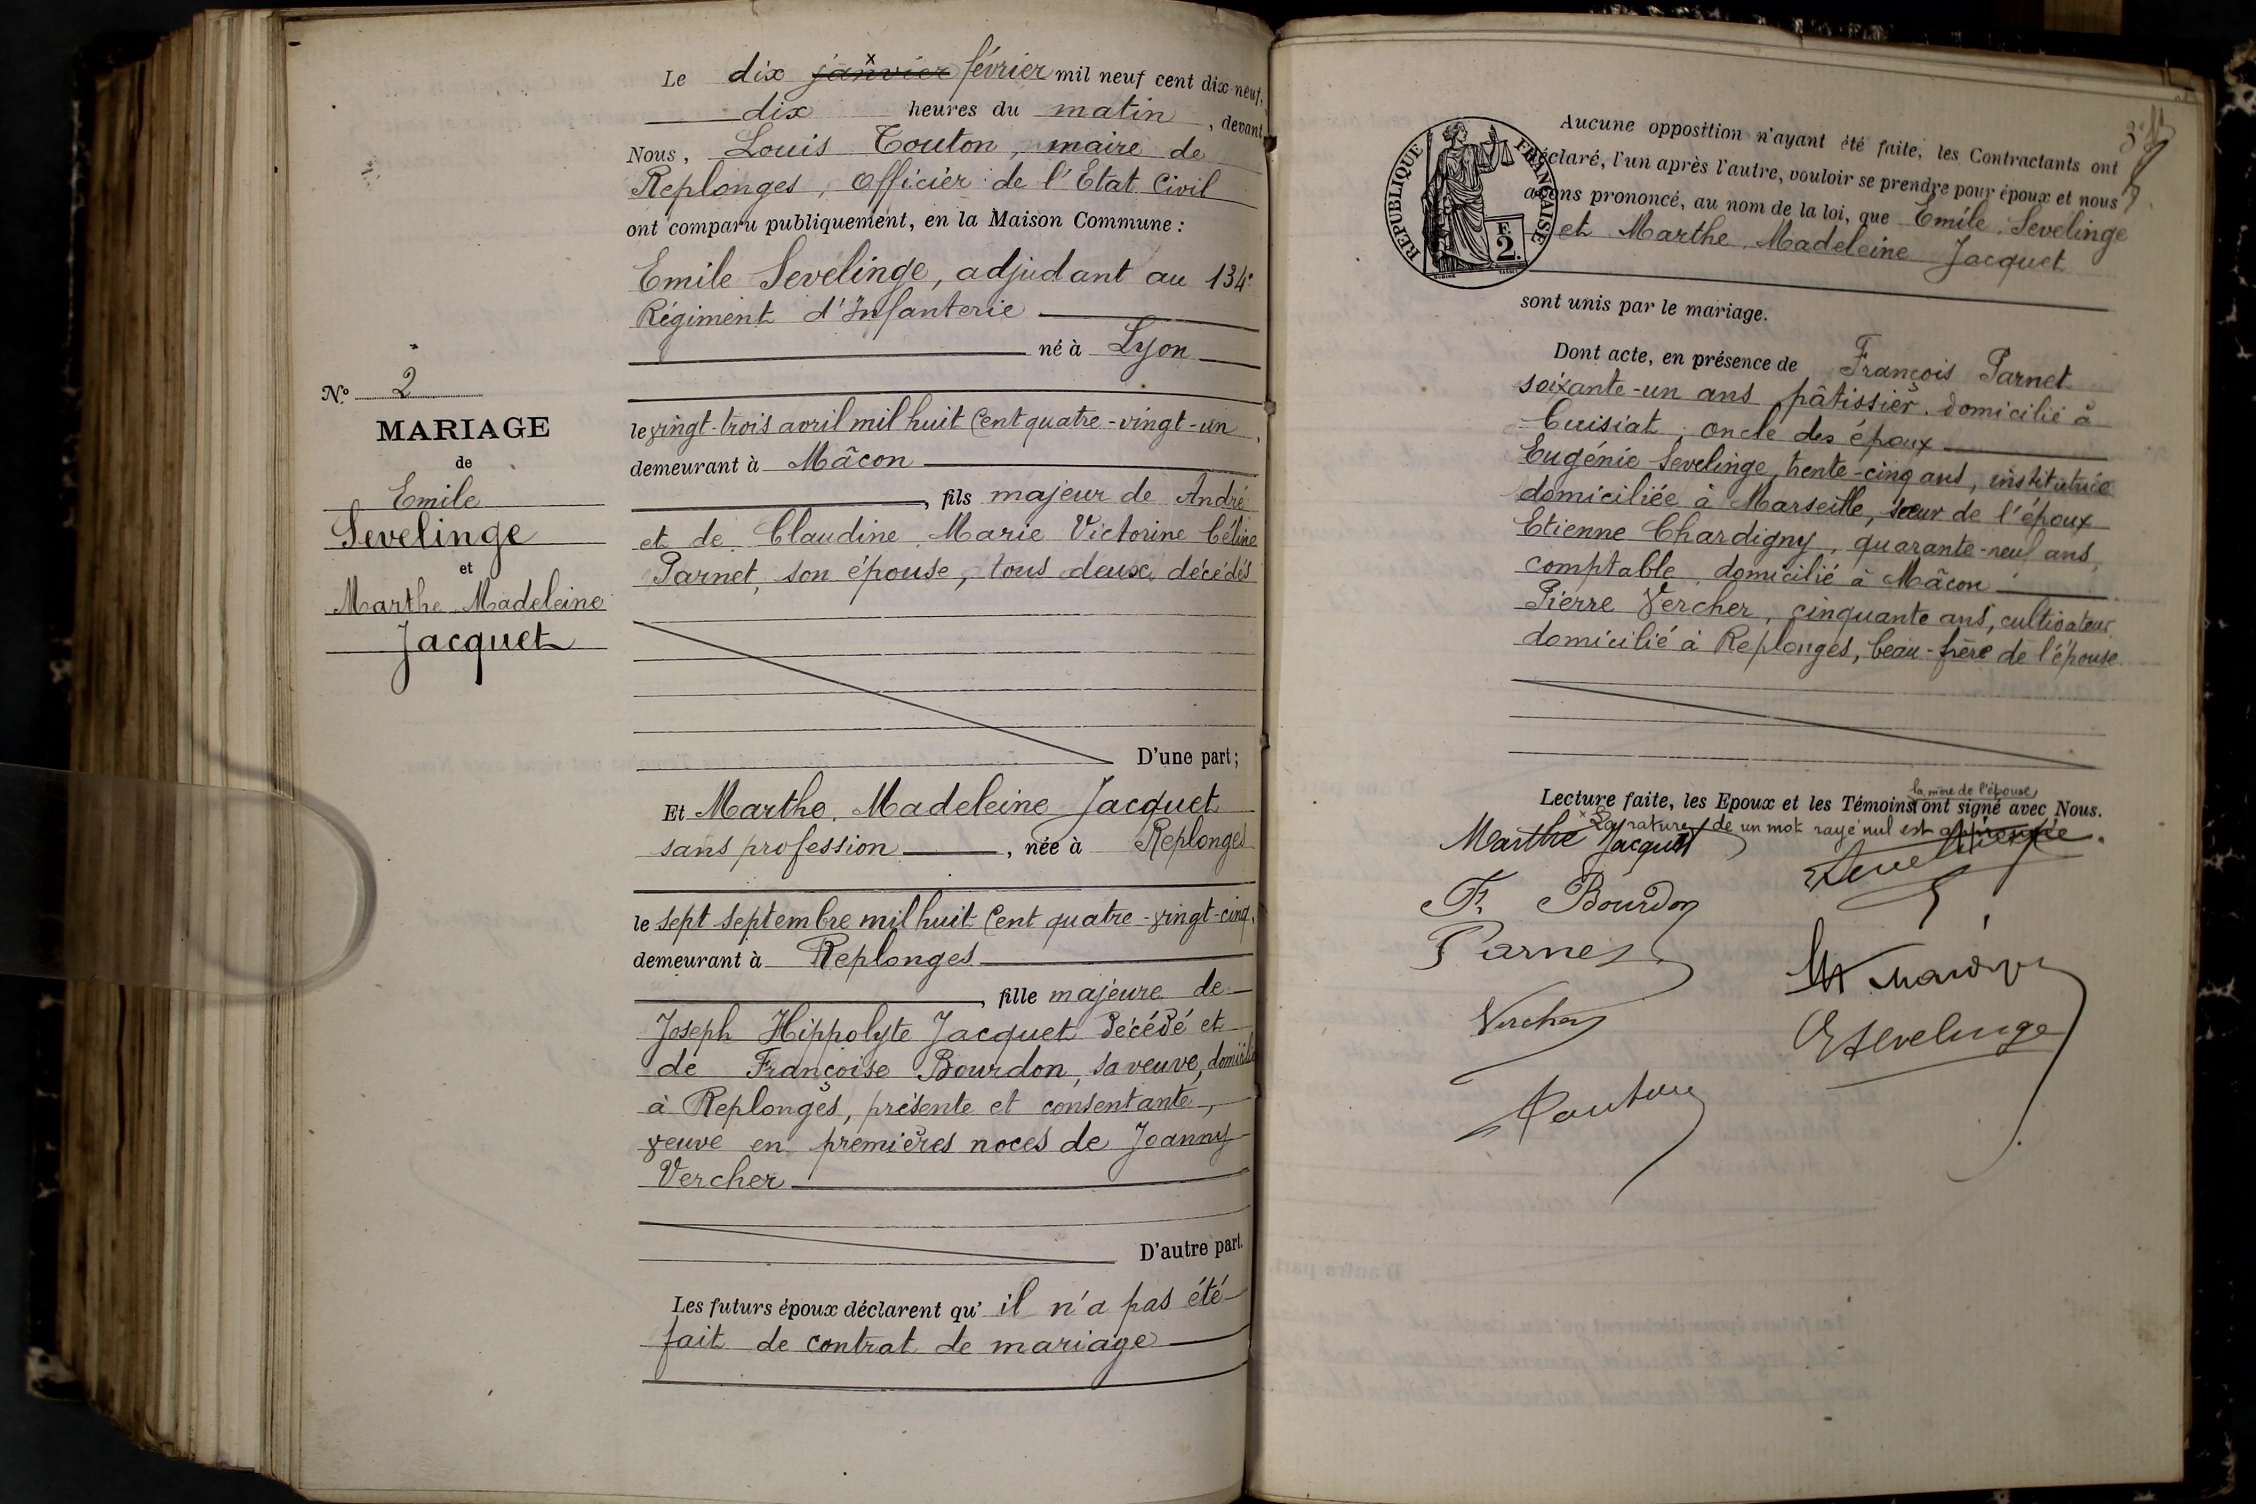 Le dix janvier février mil neuf cent dix-neuf,
dix heures du matin, devant
Nous, Louis Touton, maire de
Replonges, officier de l'Etat Civil
ont comparu publiquement, en la Maison Commune :
Emile Sevelinge, adjudant au 134e
Régiment d'Infanterie
né à Lyon
le vingt-trois avril mil huit Cent quatre-vingt-un,
demeurant à Mâcon
, fils majeur de André
et de Claudine Marie Victorine Céline
Parnet, son épouse, tous deux décédés
D'une part ;
Et Marthe Madeleine Jacquet
sans profession, née à Replonges
le sept septembre mil huit Cent quatre-vingt-cinq,
demeurant à Replonges
, fille majeure de
Joseph Hippolyte Jacquet décédé et
de Françoise Bourdon, sa veuve,
à Replonges, présente et consentante,
veuve en premières noces de Joanny
Vercher
D'autre part.
Les futurs époux déclarent qu' il n'a pas été
fait de contrat de mariage
No 2
MARIAGE
de
Emile
Sevelinge
et
Marthe Madeleine
Jacquet
RÉPUBLIQUE FRANÇAISE
E
2.
Aucune opposition n'ayant été faite, les Contractants ont
déclaré, l'un après l'autre, vouloir se prendre pour époux et nous
avons prononcé, au nom de la loi, que Emile Sevelinge
et Marthe Madeleine Jacquet
sont unis par le mariage.
Dont acte, en présence de François Parnet
soixante-un ans pâtissier, domicilié à
Cuisiat, oncle des époux
Eugénie Sevelinge, trente-cinq ans, institutrice
domiciliée à Marseille, sœur de l'époux
Etienne Chardigny, quarante-neuf ans,
comptable, domicilié à Mâcon
Pierre Vercher, cinquante ans, cultivateur
domicilié à Replonges, beau-frère de l'épouse
la mère de l'épouse
Lecture faite, les Epoux et les Témoins ont signé avec Nous.
x La rature de un mot rayé nul est approuvée.
Marthe Jacquet
Sevelinge
F. Bourdon
Parnet
Vercher
E Sevelinge
Touton